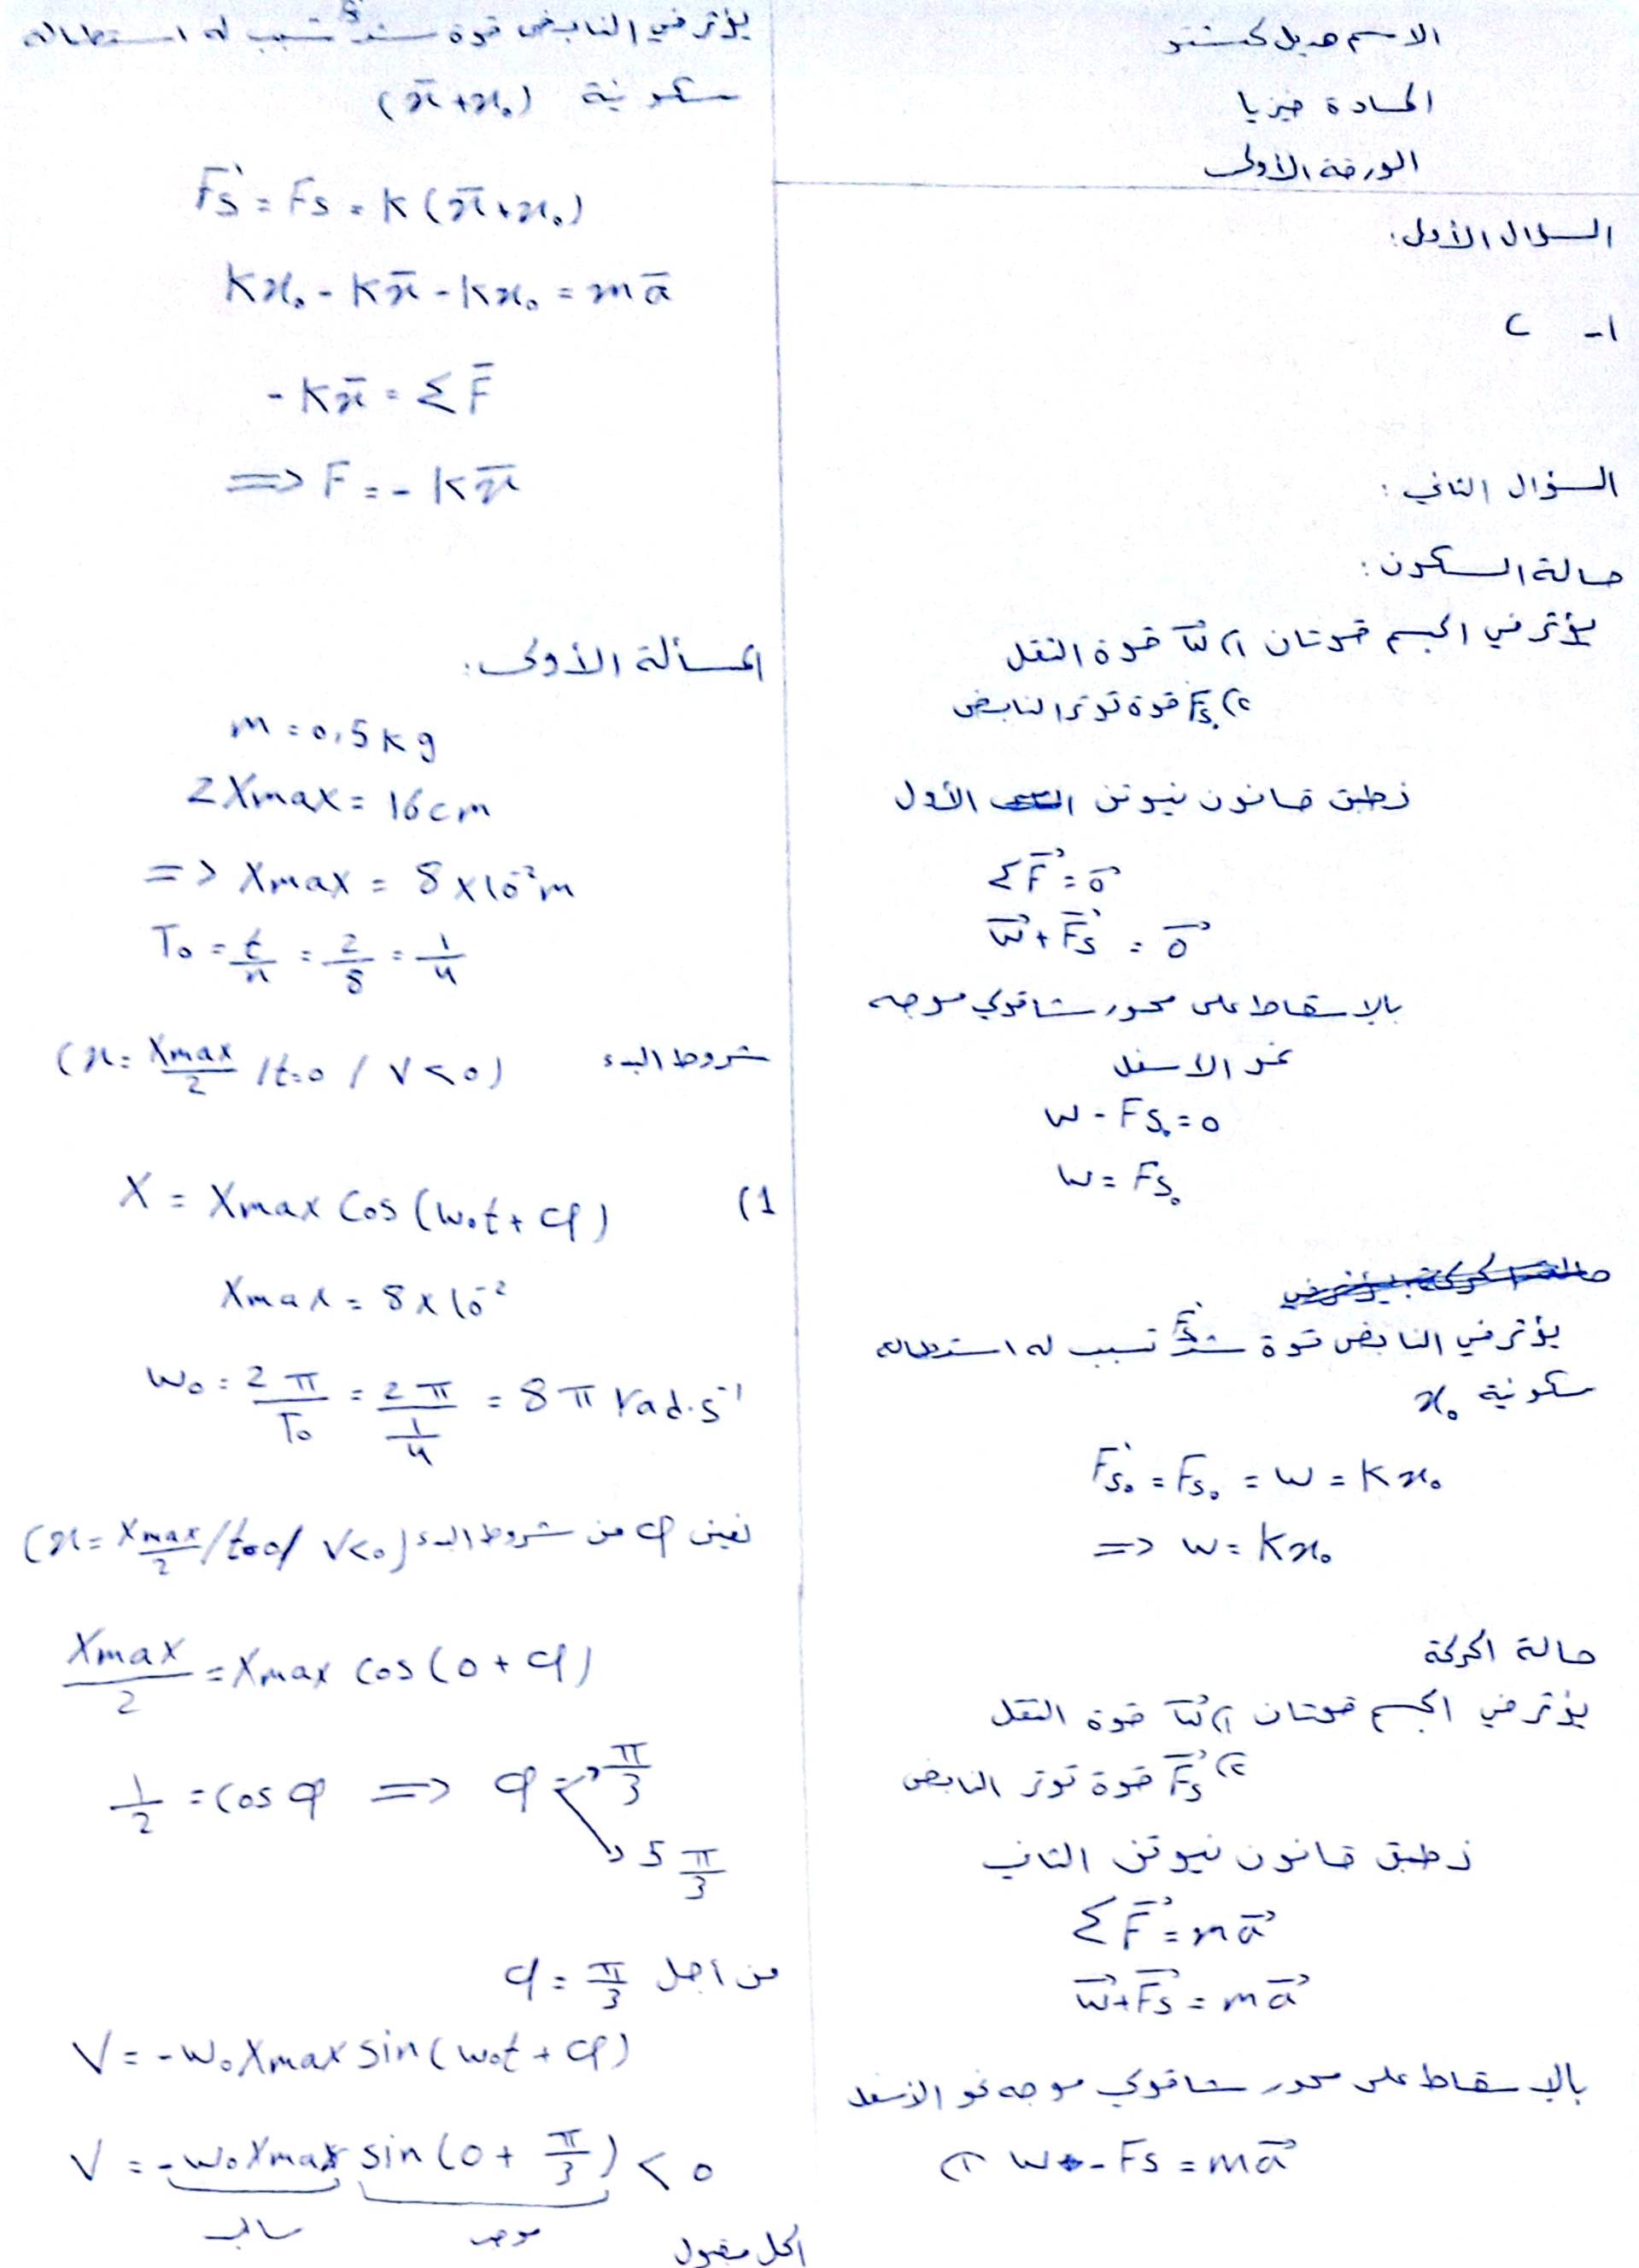 الاسم هديل كستو
المادة فيزيا
الورقة الأولى
السؤال الأول:
١- C
السؤال الثاني:
حالة السكون:
يؤثر في الجسم قوتان ١) W⃗ قوة الثقل
٢) F⃗s₀ قوة توتر النابض
نطبق قانون نيوتن الأول
Σ F⃗ = 0⃗
W⃗ + F⃗s = 0⃗
بالإسقاط على محور شاقولي موجه
نحو الاسفل
W - Fs₀ = 0
W = Fs₀
يؤثر في النابض قوة شد F's تسبب له استطالة
سكونية x₀
F's₀ = Fs₀ = W = K x₀
=> W = K x₀
حالة الحركة
يؤثر في الجسم قوتان ١) W⃗ قوة الثقل
٢) F⃗s قوة توتر النابض
نطبق قانون نيوتن الثاني
Σ F⃗ = m a⃗
W⃗ + F⃗s = m a⃗
بالإسقاط على محور شاقولي موجه نحو الأسفل
١) W - Fs = m a⃗
يؤثر في النابض قوة شد F's تسبب له استطالة
سكونية (x̄ + x₀)
F's = Fs = K (x̄ + x₀)
K x₀ - K x̄ - K x₀ = m ā
- K x̄ = Σ F̄
=> F = - K x̄
المسألة الأولى:
m = 0,5 kg
2 Xmax = 16 cm
=> Xmax = 8 x 10⁻² m
T₀ = t/n = 2/8 = 1/4
شروط البدء (x = Xmax/2 / t=0 / V < 0)
1) X = Xmax cos (ω₀t + φ)
Xmax = 8 x 10⁻²
ω₀ = 2π/T₀ = 2π/(1/4) = 8π rad.s⁻¹
نعين φ من شروط البدء (x = Xmax/2 / t=0 / V<0)
Xmax/2 = Xmax cos (0 + φ)
1/2 = cos φ => φ → π/3
→ 5 π/3
من أجل φ = π/3
V = -ω₀ Xmax sin (ω₀t + φ)
V = -ω₀ Xmax sin (0 + π/3) < 0
سالب موجب
الحل مقبول